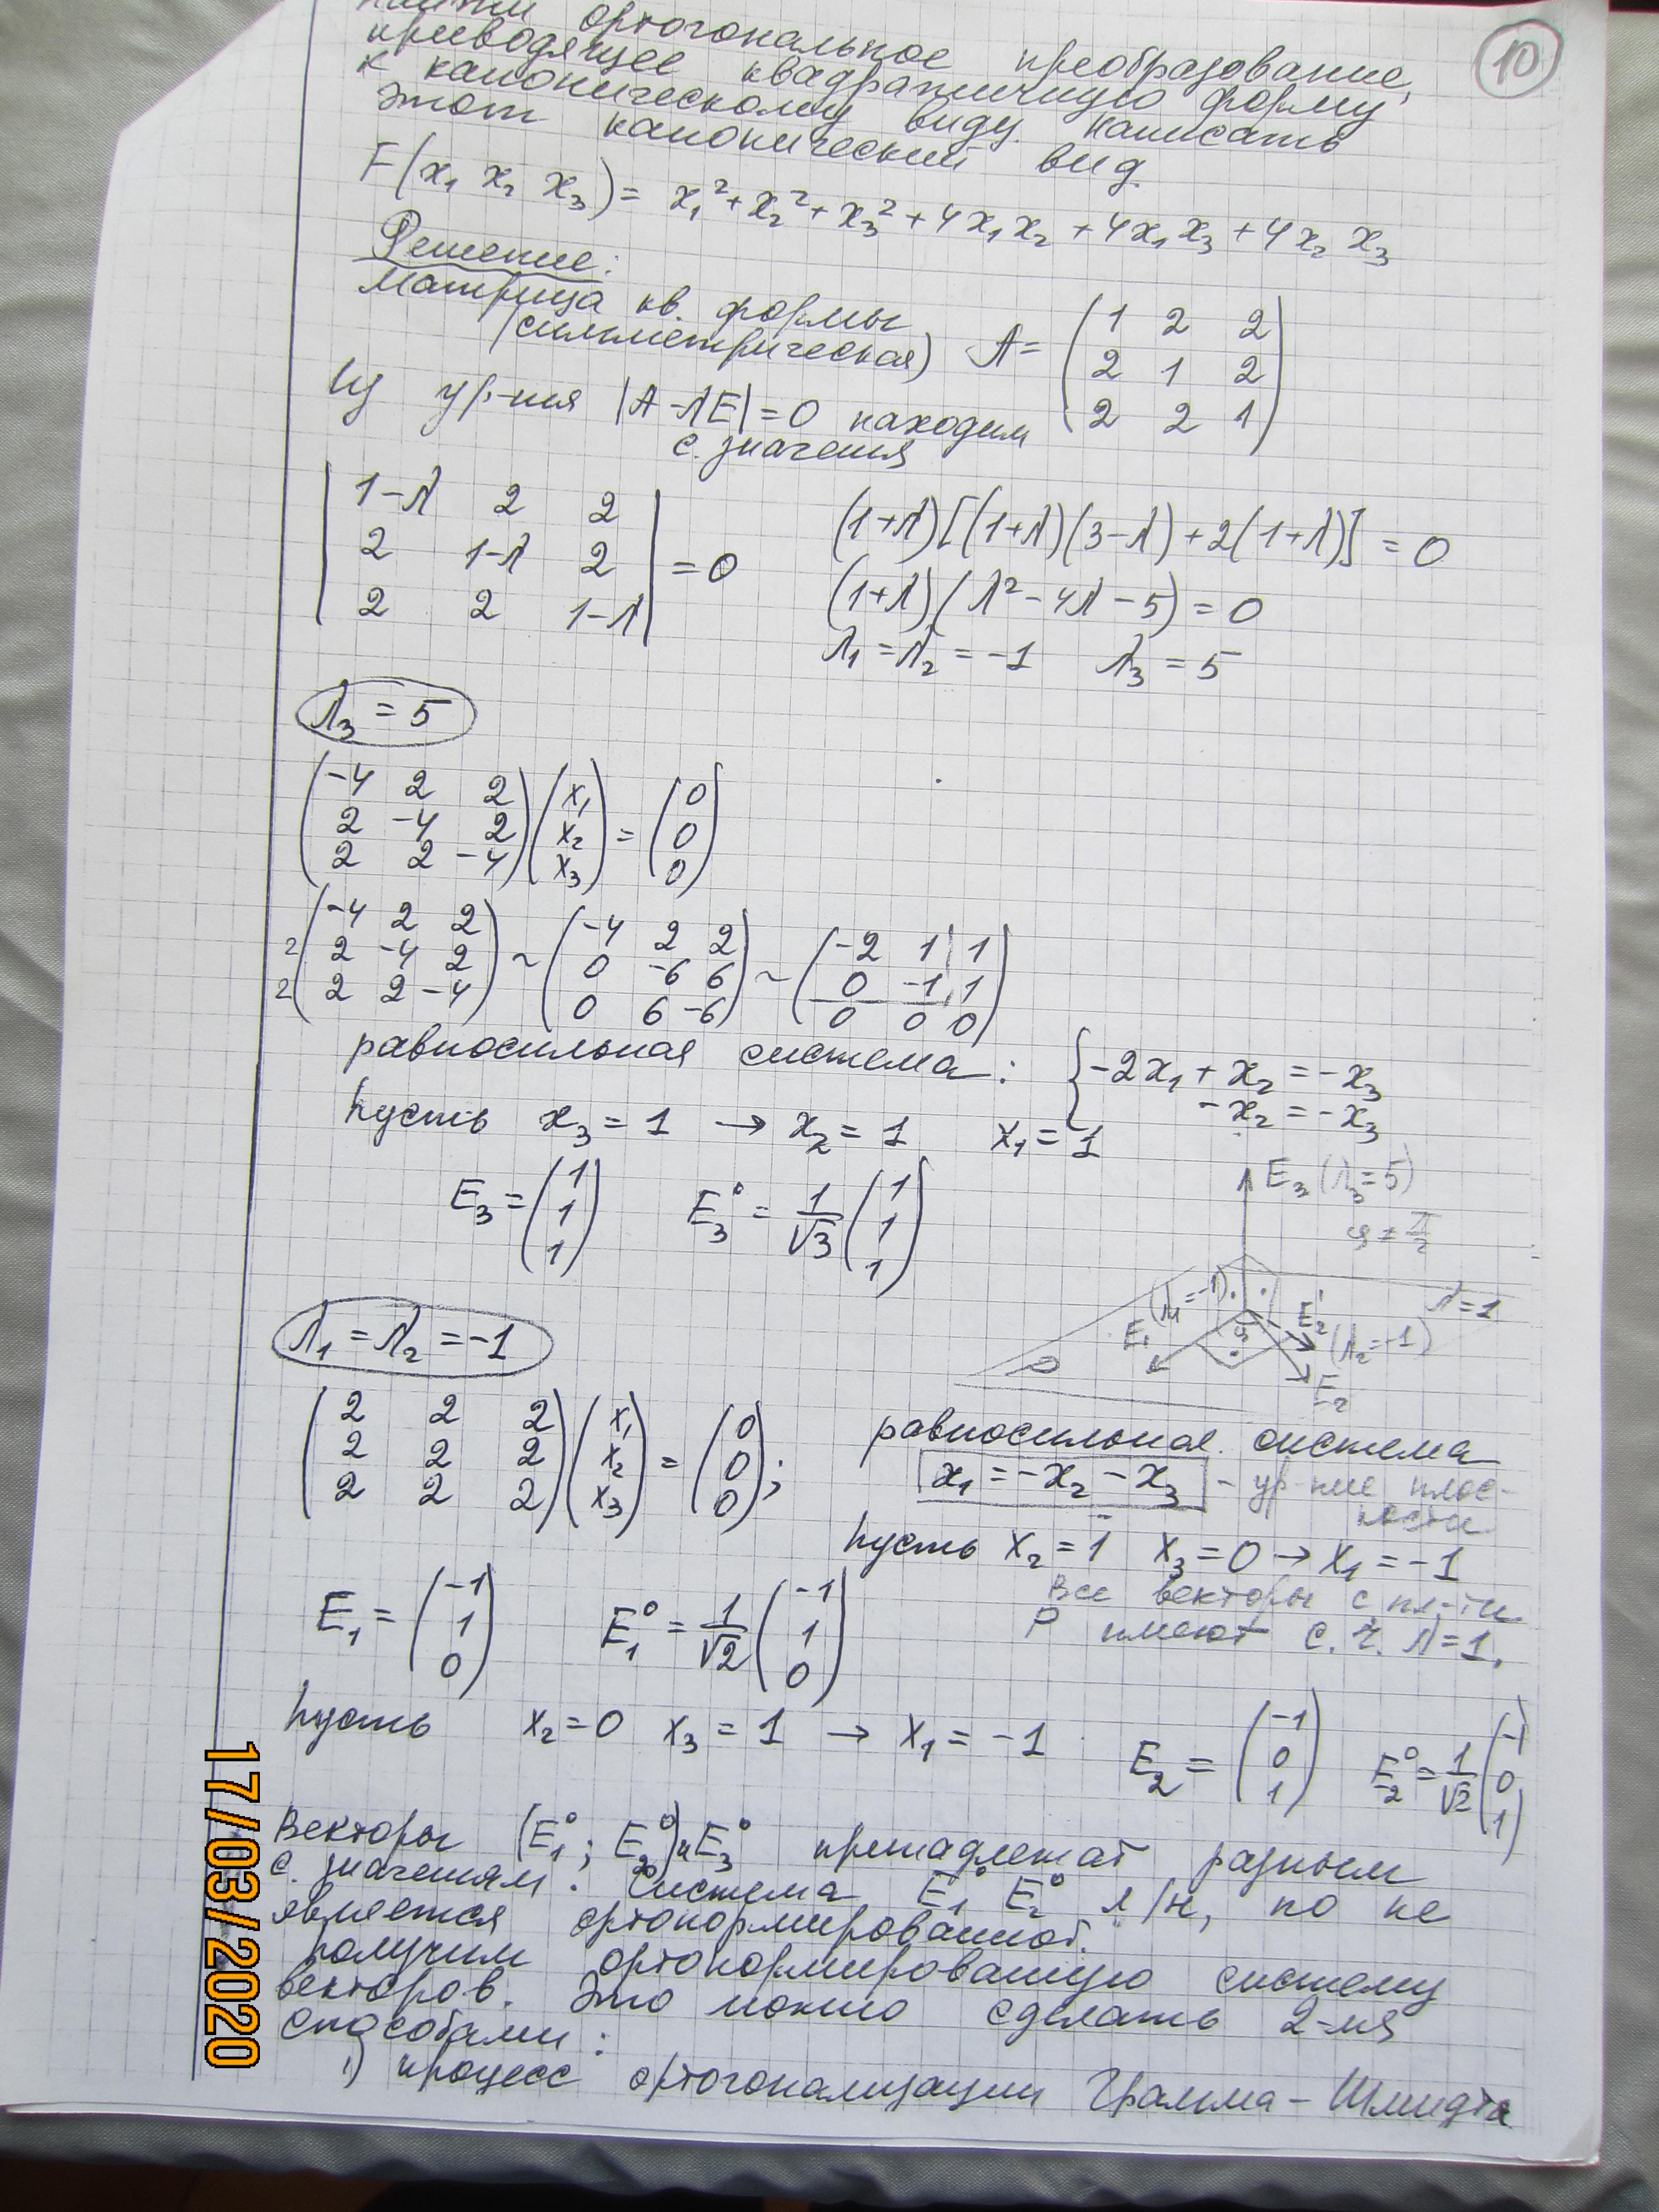 Найти ортогональное преобразование,
приводящее квадратичную форму
к каноническому виду. Написать
этот канонический вид.
F(x₁ x₂ x₃) = x₁² + x₂² + x₃² + 4x₁x₂ + 4x₁x₃ + 4x₂x₃
Решение:
Матрица кв. формы
(симметрическая) A = (1 2 2
2 1 2
2 2 1)
Из ур-ния |A-λE| = 0 находим
с. значения
|1-λ 2 2|
|2 1-λ 2| = 0
|2 2 1-λ|
(1+λ)[(1+λ)(3-λ)+2(1+λ)] = 0
(1+λ)(λ²-4λ-5) = 0
λ₁ = λ₂ = -1 λ₃ = 5
λ₃ = 5
(-4 2 2) (x₁) (0)
(2 -4 2) (x₂) = (0)
(2 2 -4) (x₃) (0)
(-4 2 2) (-4 2 2) (-2 1 1)
2 (2 -4 2) ~ (0 -6 6) ~ (0 -1 1)
2 (2 2 -4) (0 6 -6) (0 0 0)
равносильная система: { -2x₁ + x₂ = -x₃
-x₂ = -x₃
Пусть x₃ = 1 → x₂ = 1 x₁ = 1
E₃ = (1 1 1) E₃⁰ = 1/√3 (1 1 1)
E₃ (λ₃=5)
φ ± π/2
E₁ (λ₁=-1)
φ
E₂'
(λ₂=-1)
E₂
λ=1
λ₁ = λ₂ = -1
(2 2 2) (x₁) (0)
(2 2 2) (x₂) = (0);
(2 2 2) (x₃) (0)
равносильная система
x₁ = -x₂ - x₃ - ур-ние плос-
кости
Пусть x₂ = 1 x₃ = 0 → x₁ = -1
Все векторы с пл-ти
P имеют с.ч. λ=1.
E₁ = (-1 1 0) E₁⁰ = 1/√2 (-1 1 0)
Пусть x₂ = 0 x₃ = 1 → x₁ = -1 E₂ = (-1 0 1) E₂⁰ = 1/√2 (-1 0 1)
Векторы (E₁⁰; E₂⁰) и E₃⁰ принадлежат разным
с. значениям. Система E₁⁰ E₂⁰ л/н, но не
является ортонормированной.
Получим ортонормированную систему
векторов. Это можно сделать 2-мя
способами:
1) процесс ортогонализации Грамма-Шмидта
17/03/2020
10